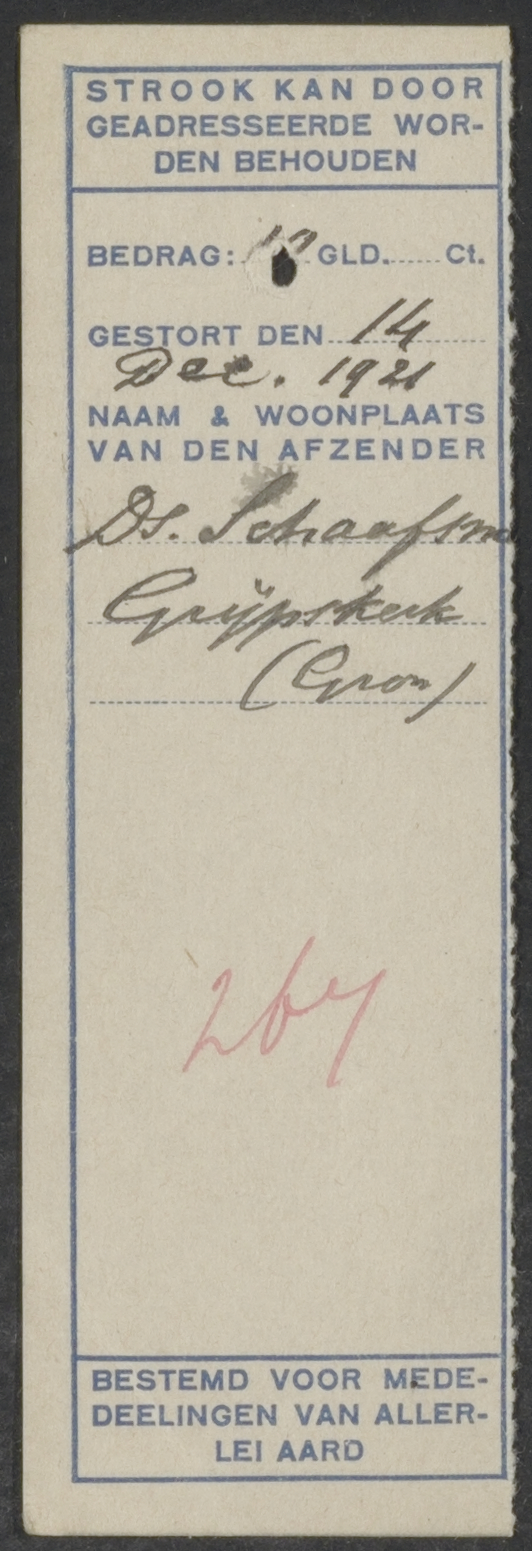 STROOK KAN DOOR
GEADRESSEERDE WOR-
DEN BEHOUDEN
BEDRAG: GLD. Ct.
GESTORT DEN 14
Dec. 1921
NAAM & WOONPLAATS
VAN DEN AFZENDER
Ds. Schaafsma
Grijpskerk
(Gron)
267
BESTEMD VOOR MEDE-
DEELINGEN VAN ALLER-
LEI AARD